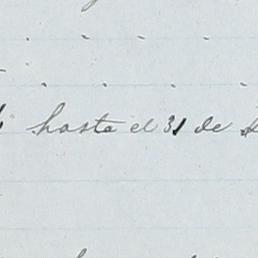 hasta el 31 de